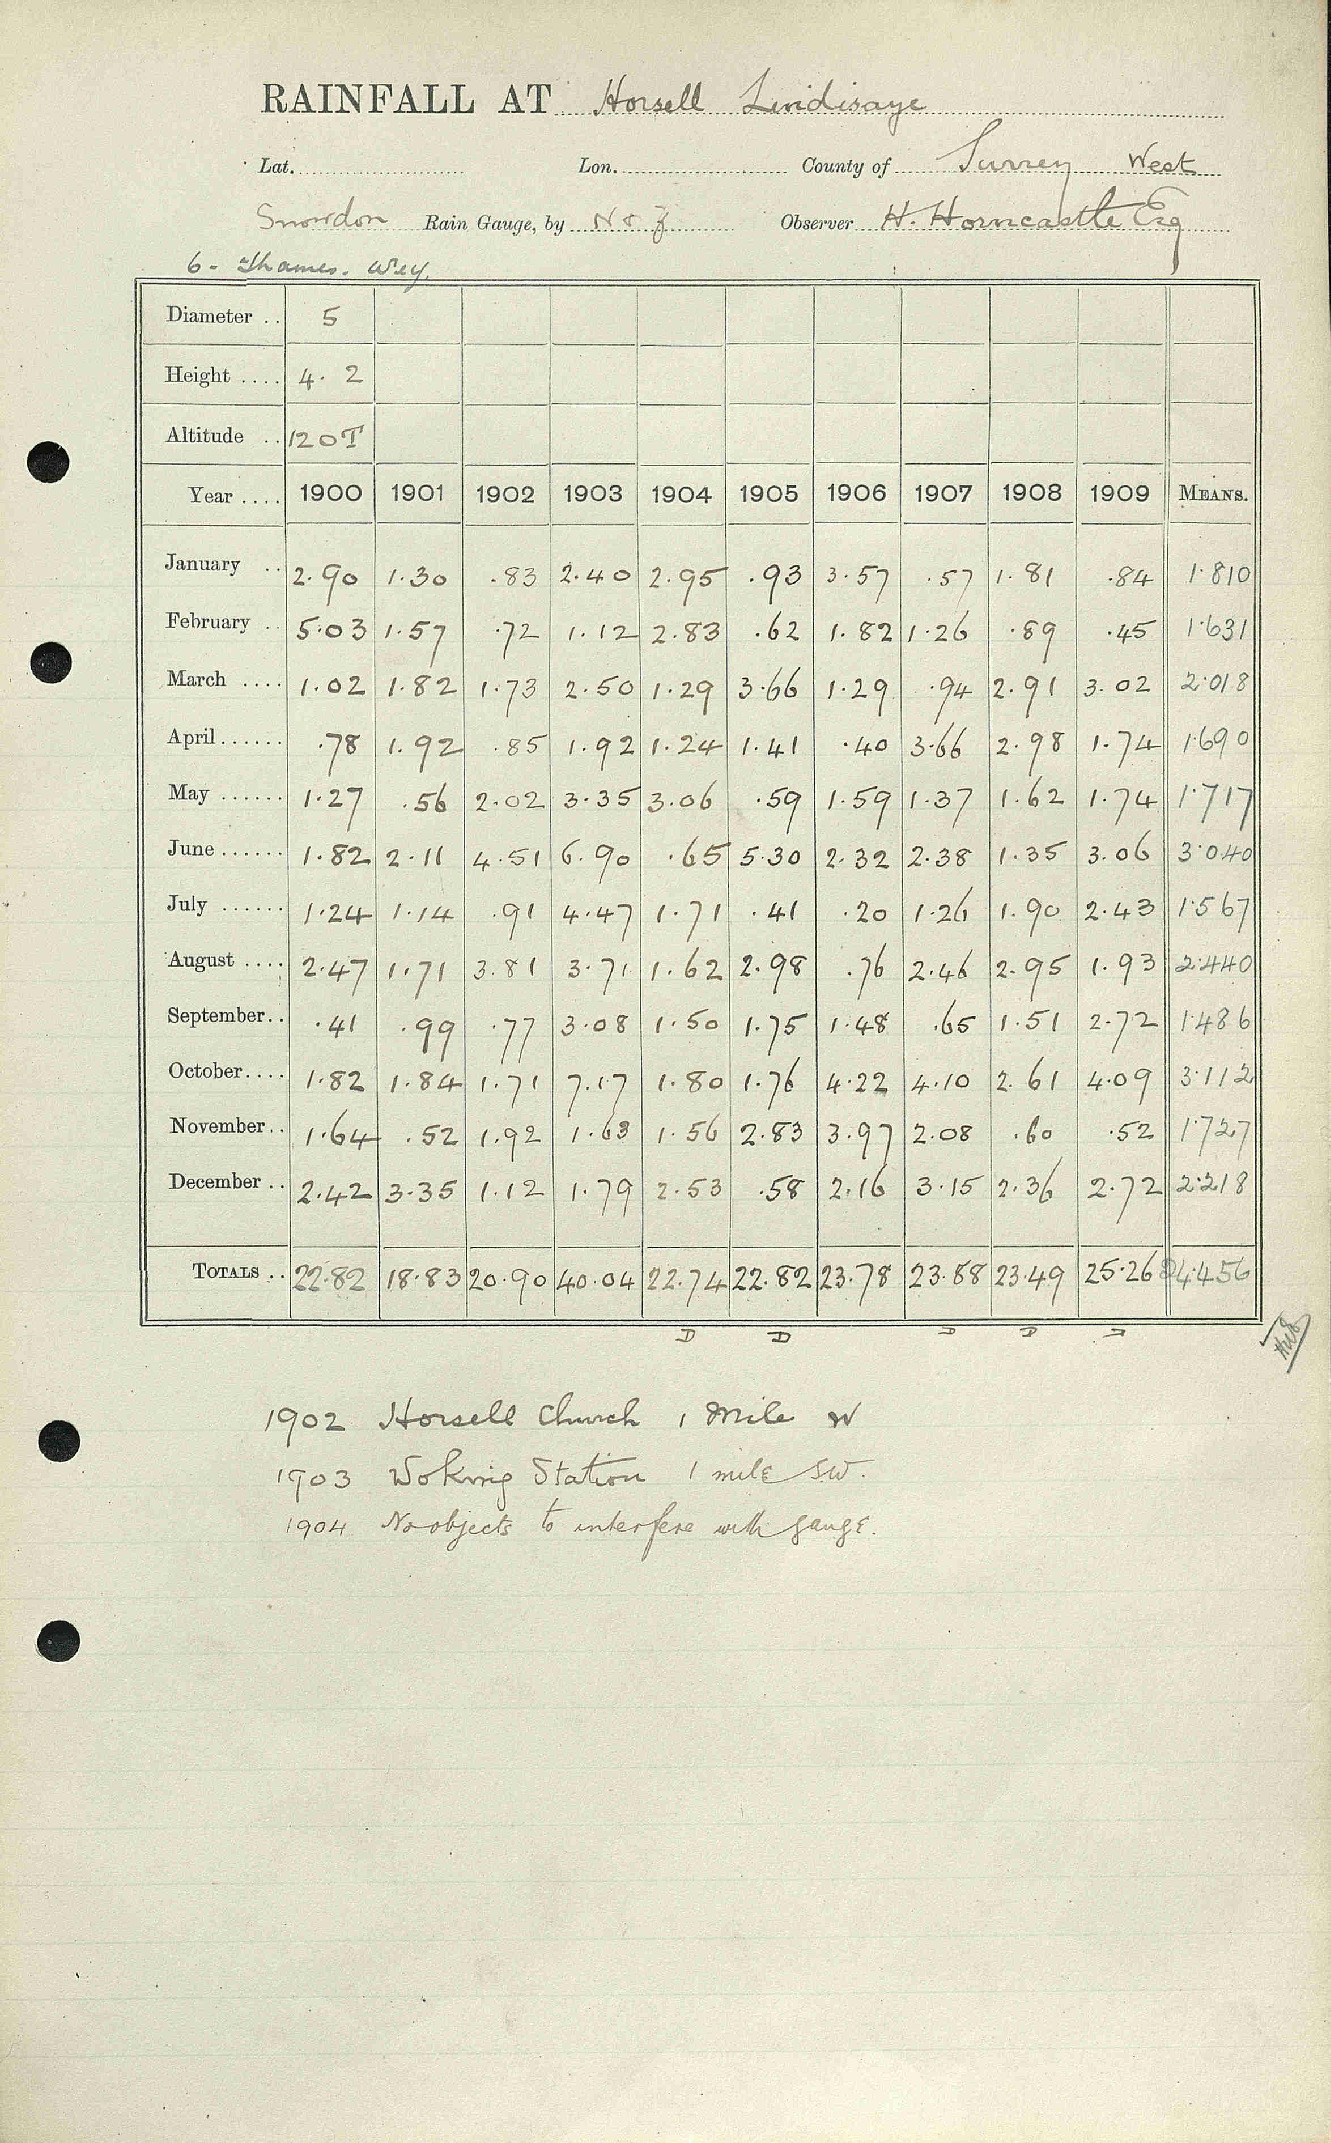 RAINFALL AT Horsell Lindisaye
Lat. Lon. County of Surrey West
Snowdon Rain Gauge, by N & Z Observer H. Horncastle Esq
6 - Thames. Wey.
Diameter .. 5
Height .... 4. 2
Altitude .. 120T
Year .... 1900 1901 1902 1903 1904 1905 1906 1907 1908 1909 MEANS.
January .. 2.90 1.30 .83 2.40 2.95 .93 3.57 .57 1.81 .84 1.810
February .. 5.03 1.57 .72 1.12 2.83 .62 1.82 1.26 .89 .45 1.631
March .... 1.02 1.82 1.73 2.50 1.29 3.66 1.29 .94 2.91 3.02 2.018
April ...... .78 1.92 .85 1.92 1.24 1.41 .40 3.66 2.98 1.74 1.690
May ...... 1.27 .56 2.02 3.35 3.06 .59 1.59 1.37 1.62 1.74 1.717
June ...... 1.82 2.11 4.51 6.90 .65 5.30 2.32 2.38 1.35 3.06 3.040
July ...... 1.24 1.14 .91 4.47 1.71 .41 .20 1.26 1.90 2.43 1.567
August .... 2.47 1.71 3.81 3.71 1.62 2.98 .76 2.46 2.95 1.93 2.440
September .. .41 .99 .77 3.08 1.50 1.75 1.48 .65 1.51 2.72 1.486
October .... 1.82 1.84 1.71 7.17 1.80 1.76 4.22 4.10 2.61 4.09 3.112
November .. 1.64 .52 1.92 1.63 1.56 2.83 3.97 2.08 .60 .52 1.727
December .. 2.42 3.35 1.12 1.79 2.53 .58 2.16 3.15 2.36 2.72 2.218
TOTALS .. 22.82 18.83 20.90 40.04 22.74 22.82 23.78 23.88 23.49 25.26 24.456
D D D D D
1902 Horsell Church 1 Mile W
1903 Woking Station 1 mile SW.
1904 No objects to interfere with gauge.